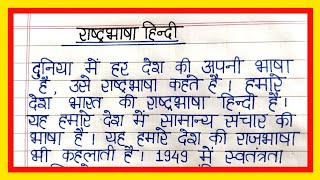 राष्ट्रभाषा हिन्दी
दुनिया में हर देश की अपनी भाषा
है, उसे राष्ट्रभाषा कहते है। हमारे
देश भारत की राष्ट्रभाषा हिन्दी है।
यह हमारे देश में सामान्य संचार की
भाषा है। यह हमारे देश की राजभाषा
भी कहलाती है। 1949 में स्वतंत्रता